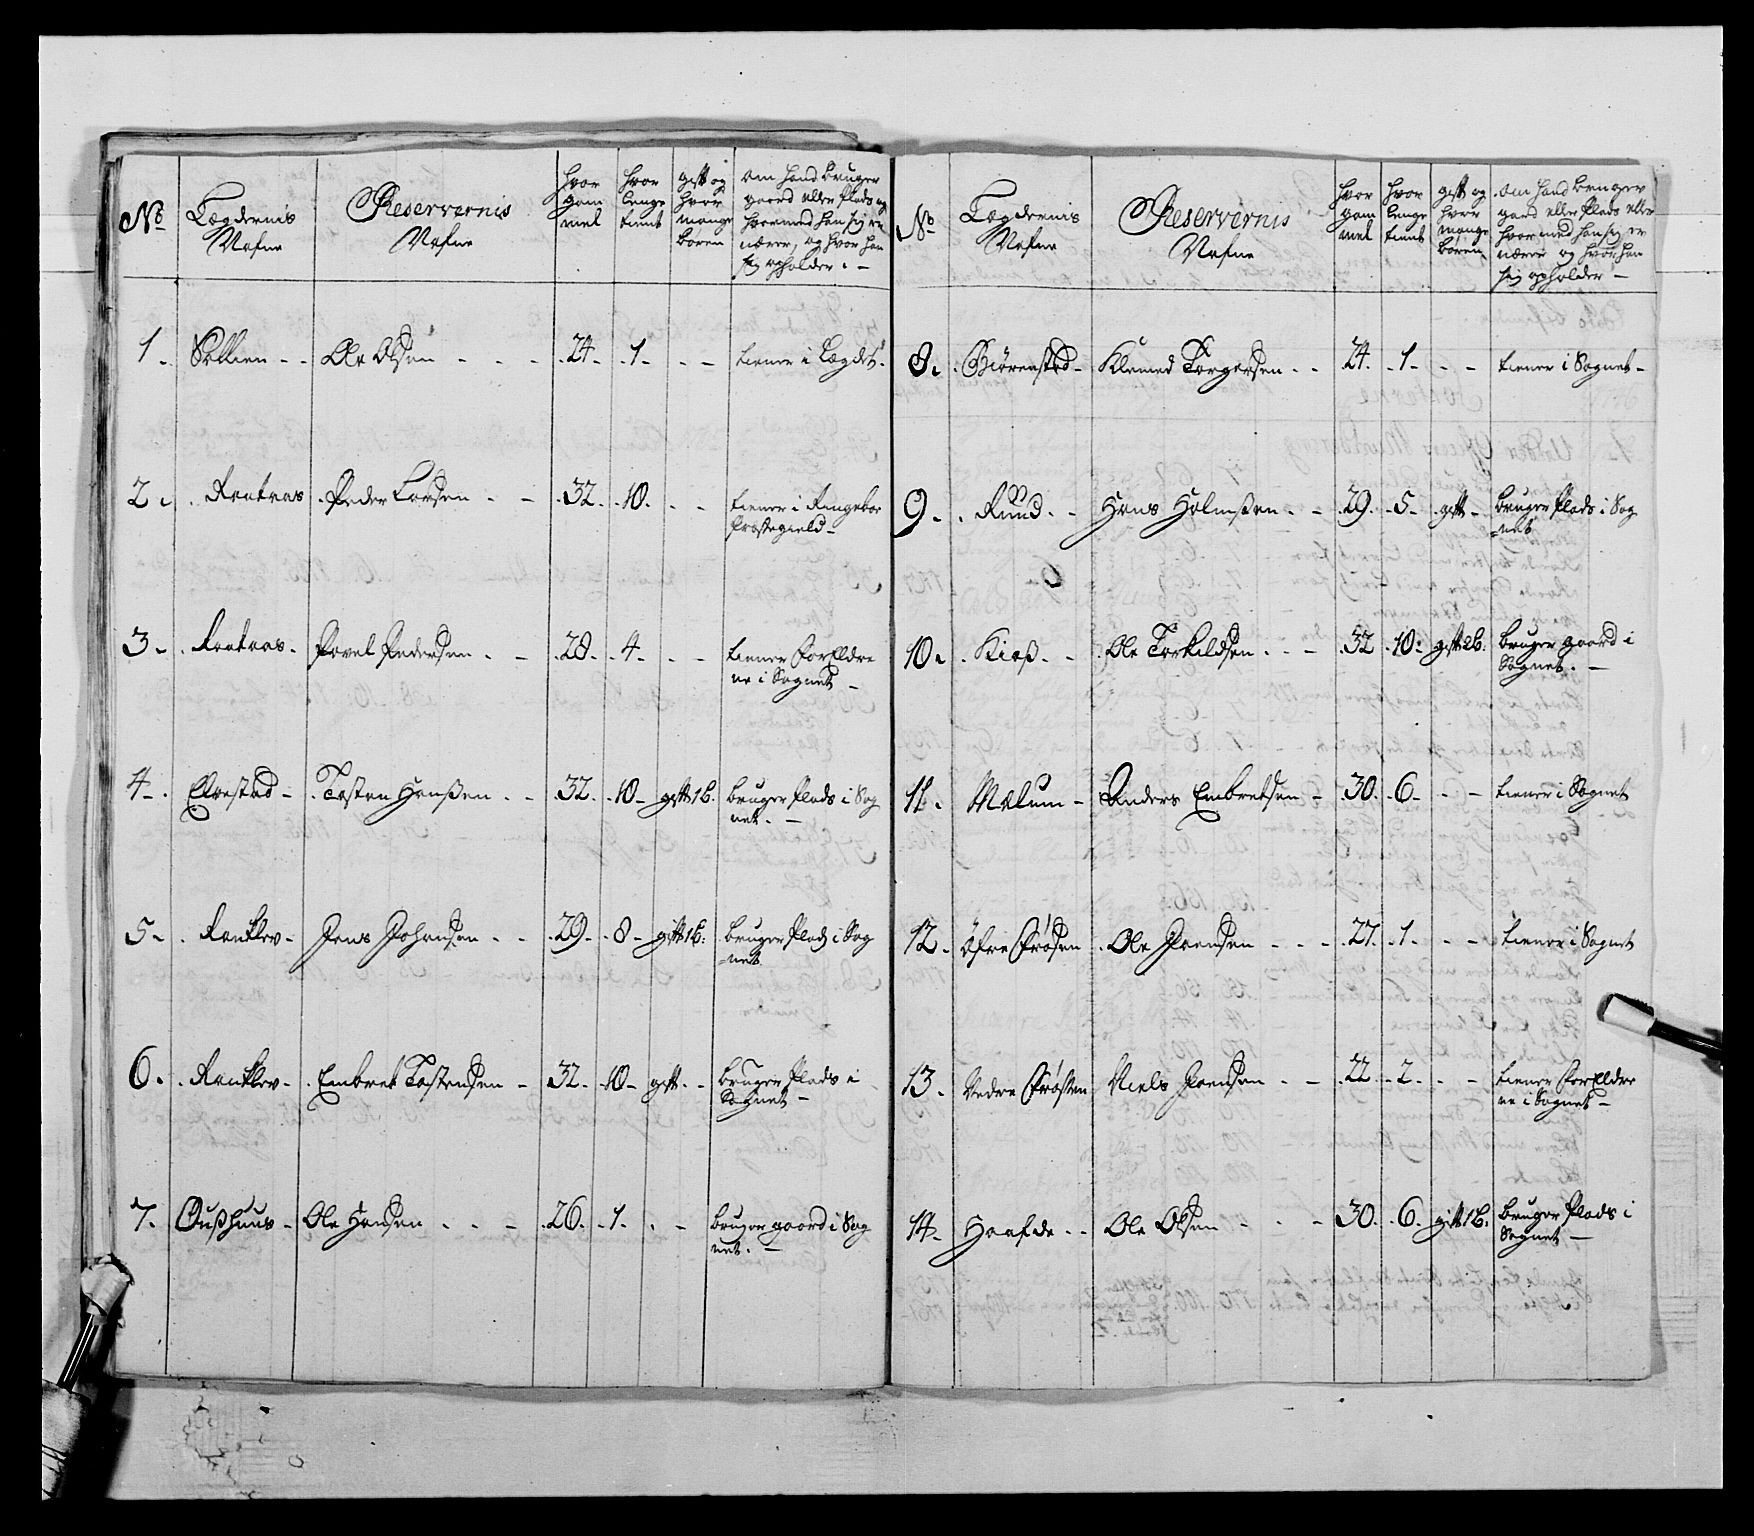 No
Lægdernis Nafne
Reservernis Nafne
hvor gam mel
hvor lenge tient
gift og hvor mange børen
om hand bruger gaard eller Plads og hvormed han sig er nærer, og hvor han sig opholder. –
1. Sollien - - Ole Olsen - - - 24. 1 - - - tiener i Lægdet.
2. Rontaas Peder Larsen - - 32. 10. - - tiener i Ringeboe Præstegield -
3. Rontaas - Povel Pedersen - - 28. 4. - - tiener Forældre ne i Sognet -
4. Elvestad - Tosten Hansen - - 32. 10 - gift 1 b. bruger Plads i Sog net. -
5. Ranklev - Jens Johansen - - 29. 8 - gift 1 b. bruger Plads i Sog =net
6. Ranklev - Embret Tostensen - 32. 10 - gift - - bruger Plads i Sognet -
7. Oushuus - Ole Hansen - - - 26. 1. - - bruger gaard i Sog net. -
No
Lægdernis Nafne
Reservernis Nafne
hvor gam mel
hvor lenge tient
gift og hvor mange børen
om hand bruger gard eller Plads eller hvor med han sig er nærer og hvor han sig opholder -
8. Biørenstad - Klemed Torgersen - - 24. 1 - - - tiener i Sognet -
9. Ruud - - Hans Holmsen - - 29. 5 - gift - bruger Plads i Sog =net
10. Kiøs - - Ole Torkildsen - - - 32 10. gift 2 b. bruger gaard i Sognet. -
11. Mælum - Anders Embretsen - 30. 6 - - - tiener i Sognet
12. Øfre Frøsen Ole Joensen - - - 27. 1 - - - tiener i Sognet
13. Nedre Frøsen Niels Joensen - - 22 2 - - - tiener Forældre ne i Sognet -
14. Haafde - - Ole Olsen - - - 30. 6. gift 1 b. bruger Plads i Sognet -